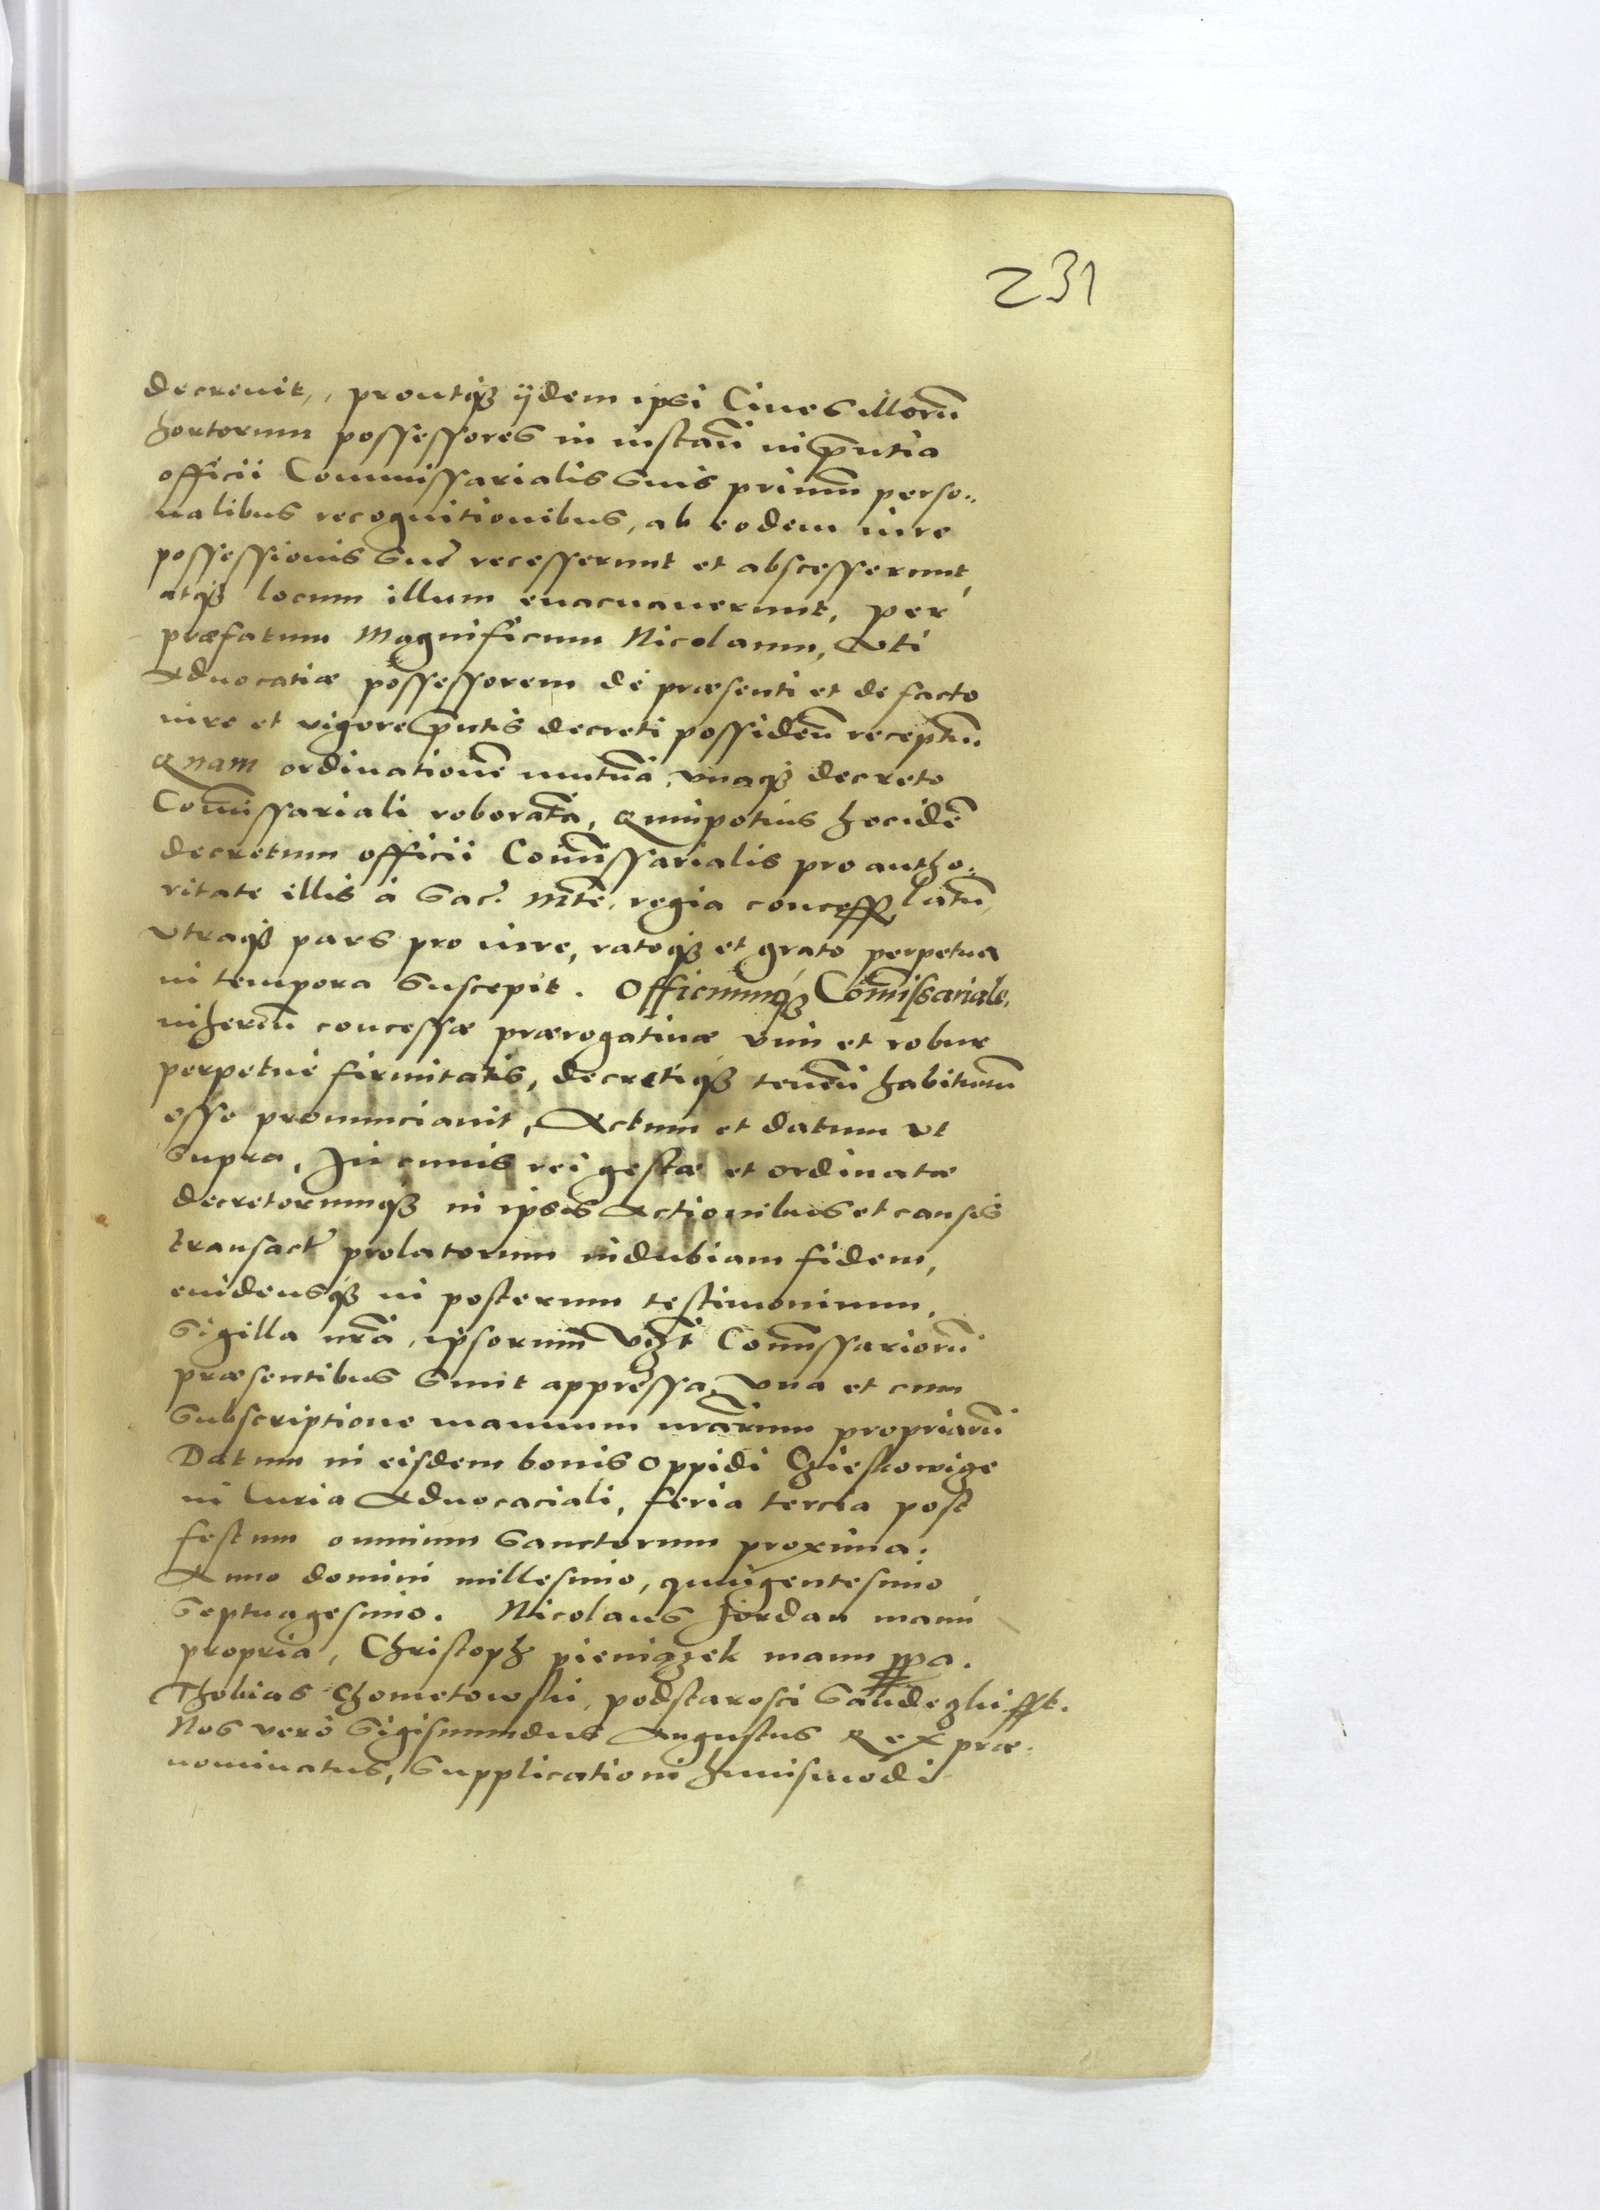 231
decreuit, proutq3 ijdem ipsi Ciues illorū
hortorum possessores in instanti in pntia
officii Commissarialis suis primū perso..
nalibus recognitionibus, ab eodem iure
possessionis sue recesserunt et abscesserunt,
atq3 locum illum euacuauerunt, per
præfatum Magnificum Nicolaum, Vti
Aduocatiæ possessorem de præsenti et de facto
iure et vigore pntis decreti possidēn receptum
Quam ordinationē mutuā, vnaq3 decreto
Comissariali roboratā, quinpotius hocidē
decretum officii Comissarialis pro autho..
ritate illis à Sac. Mte. regia concess latū,
Vtraq3 pars pro iure, ratoq3 et grato perpetua
in tempora suscepit. Officiumq3 Comissariale,
inherēn concessæ prærogatiuæ vim et robur
perpetuè firmitatis, decretiq3 tenēn habiturū
esse pronunciauit, Actum et datum vt
supra, In cuius rei gestæ et ordinatæ
decretorumq3 in ipsis Actionibus et causis
transact prolatorum indubiam fidem,
euidensq3 in posterum testimonium,
Sigilla nrā, ipsorum vzt Comissariorū
præsentibus sunt appressa, vna et cum
subscriptione manuum nrārum propriarū
Datum in eisdem bonis Oppidi Czieskowige
in Curia Aduocaciali, feria tercia post
festum omnium Sanctorum proxima.
Anno domini millesimo, quingentesimo
Septuagesimo. Nicolaus Jordan manu
propria, Christoph pieniązek manu ppa.
Thobias Chometowski, podstarosci Sandezki sst.
Nos verò Sigismundus Augustus Rex præ..
nominatus, supplicationi huiusmodi